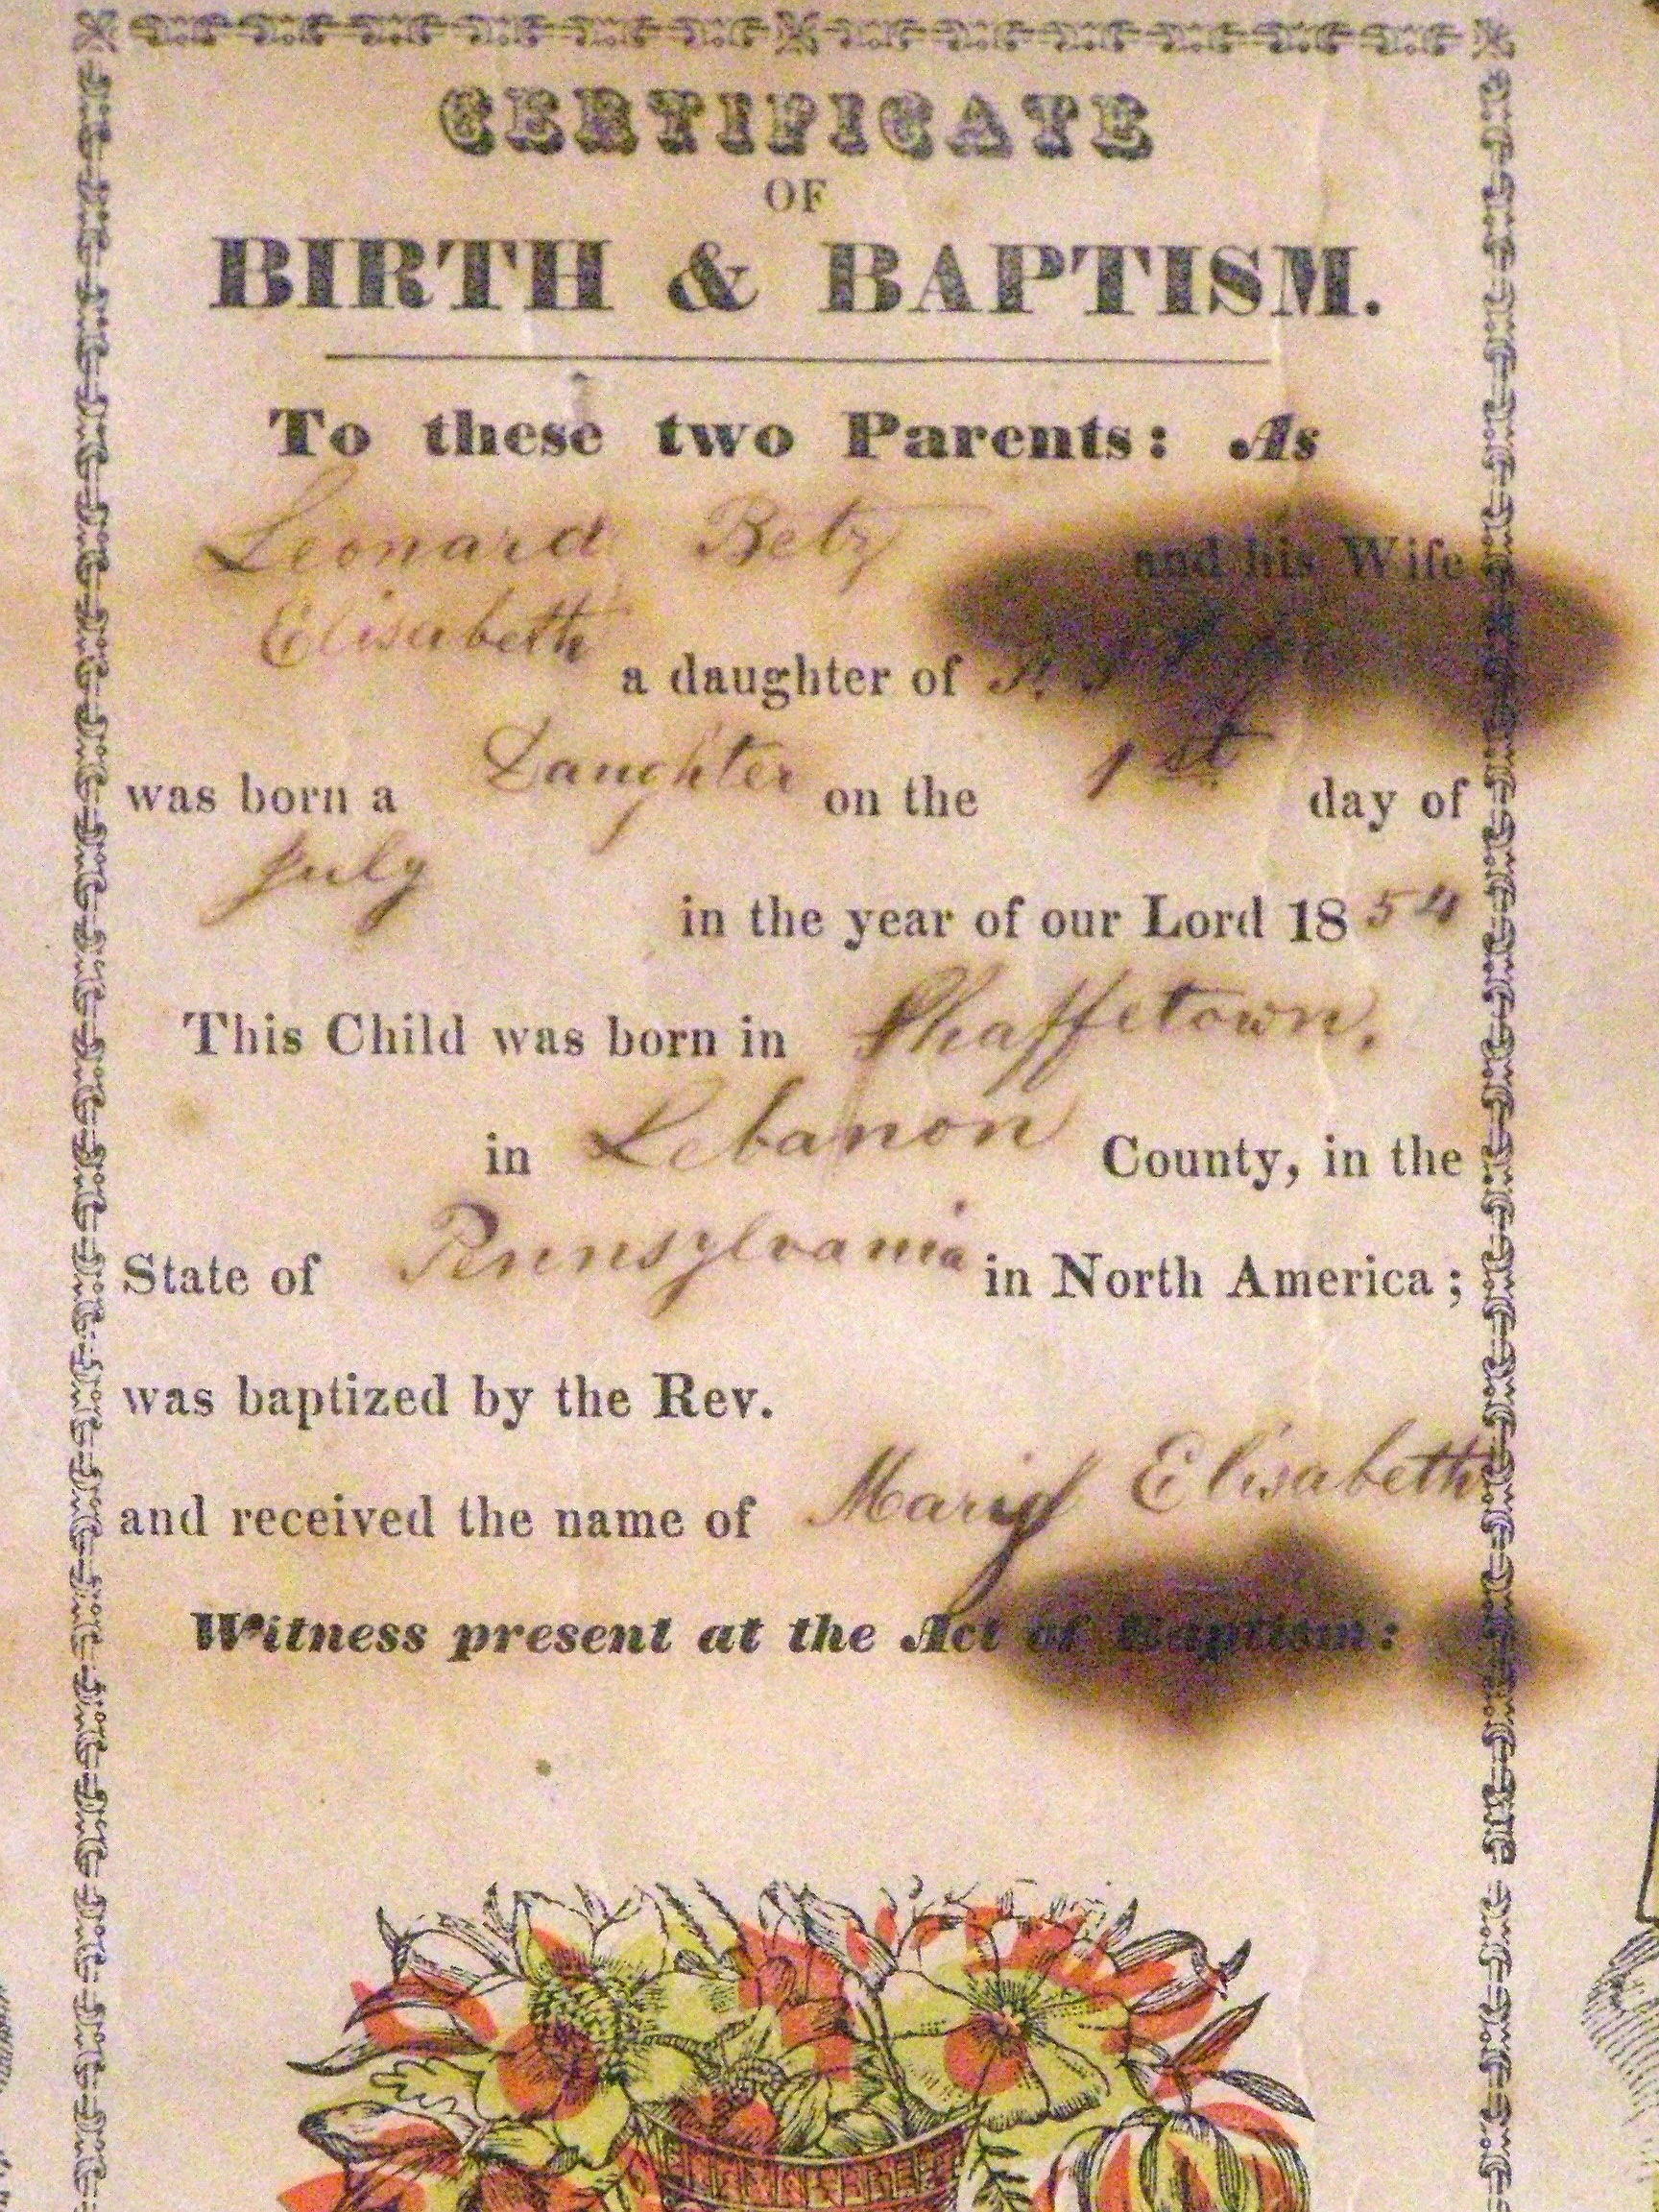 CERTIFICATE
OF
BIRTH & BAPTISM.
To these two Parents: As
Leonard Betz and his Wife
Elisabeth a daughter of
was born a Daughter on the 1st day of
July in the year of our Lord 1854
This Child was born in Shaffetown,
in Lebanon County, in the
State of Pennsylvania in North America;
was baptized by the Rev.
and received the name of Elisabeth
Witness present at the Act of Baptism: